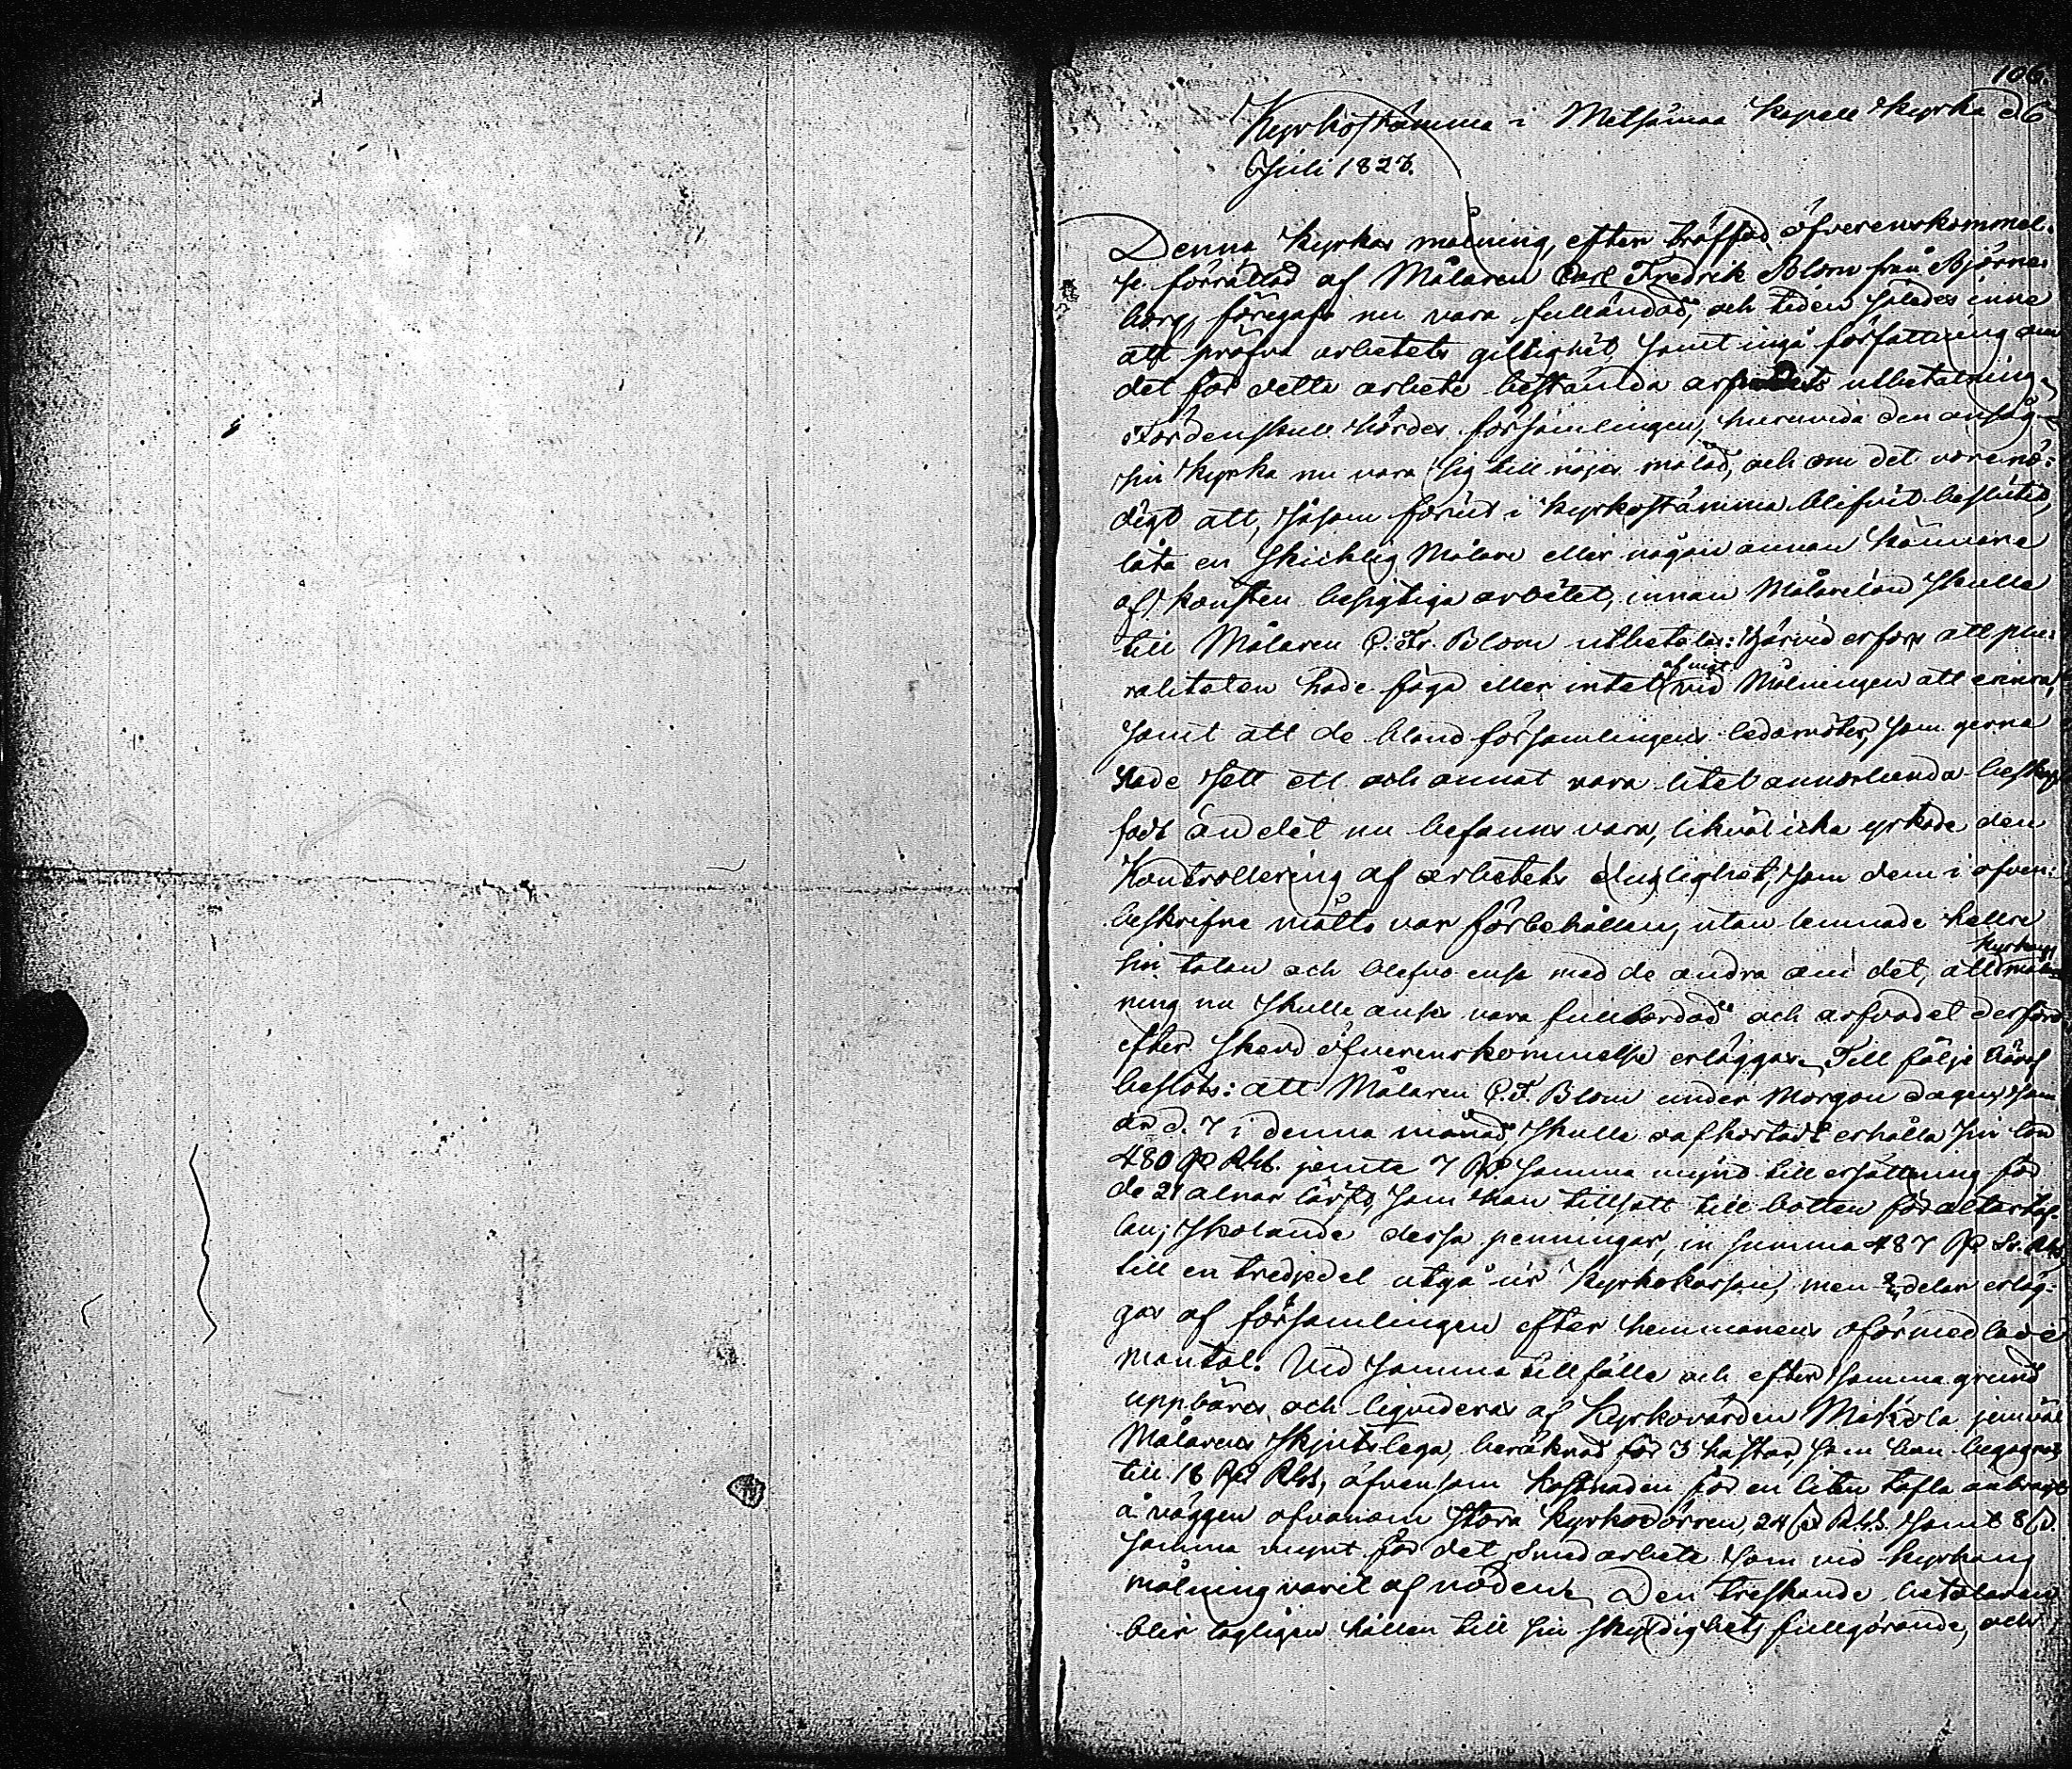 106.
Kyrkostämma i Metsämaa Kapell Kyrka d 6
Julii 1823.
Denna Kyrkas målning, efter träffad öfverenskommel-
se förrättad af Målaren Carl Fredrik Blom från Björne-
borg, föregafs nu vara fulländad, och tiden således inne
att pröfva arbetets giltighet, samt ingå författning om
det för detta arbete bestämda arfvodets utbetalning.
Fördenskull hördes församlingen, huruvida den ansåg
sin Kyrka nu vara sig till nöjes målad, och om det vore nö-
digt att, såsom förut i Kyrkostämma blifvit beslutit,
låta en skicklig Målare eller någon annan kännare
af konsten besigtiga arbetet, innan Målarelön skulle
till Målaren C. Fr. Blom utbetalas: Härvid erfors att plu-
raliteten hade föga eller intet vid Målningen att erinra,
samt att de bland församlingens ledamöter, som gerna
hade sett ett och annat vara litet annorlunda beskaf-
fadt än det nu befanns vara, likväl icke yrkade den
Kontrollering af arbetets duglighet, som dem i ofvan-
beskrifne måtto var förbehållen, utan lemnade hellre
sin talan och blefvo ense med de andra om det, att Kyrkans mål-
ning nu skulle anses vara fullbordad och arfvodet derföre
efter skedd öfverenskommelse erläggas. Till följe häraf
beslöts: att Målaren C. F. Blom under Morgondagen som
är d. 7 i denna månad skulle oafkortadt erhålla sin lön
480 Rd Rgs. jemte 7 Rd. samma mynt till ersättning för
de 21 alnar lärft, som han tillsatt till botten för altartaf-
lan; skolande dessa penningar, in summa 487 Rd Sv. Rgs
till en tredjedel utgå ur Kyrkokassan, men 2/3 delar erläg-
gas af församlingen efter hemmanens oförmedlade
mantal. Vid samma tillfälle och efter samma grund
uppbäres och liqvideras af Kyrkovärden Mäkölä jemväl
Målarens skjutslega, beräknad för 3 hästar, som han begagnat
till 18 Rd Rgs, äfvensom kostnaden för en liten tafla anbragt
å väggen ofvanom stora Kyrkodörren, 24 Rd Rgs. samt 8
samma mynt för det smedarbete som vid kyrkans
målning varit af nöden. Den treskande betalaren
blir lagligen hållen till sin skyldighets fullgörande, och